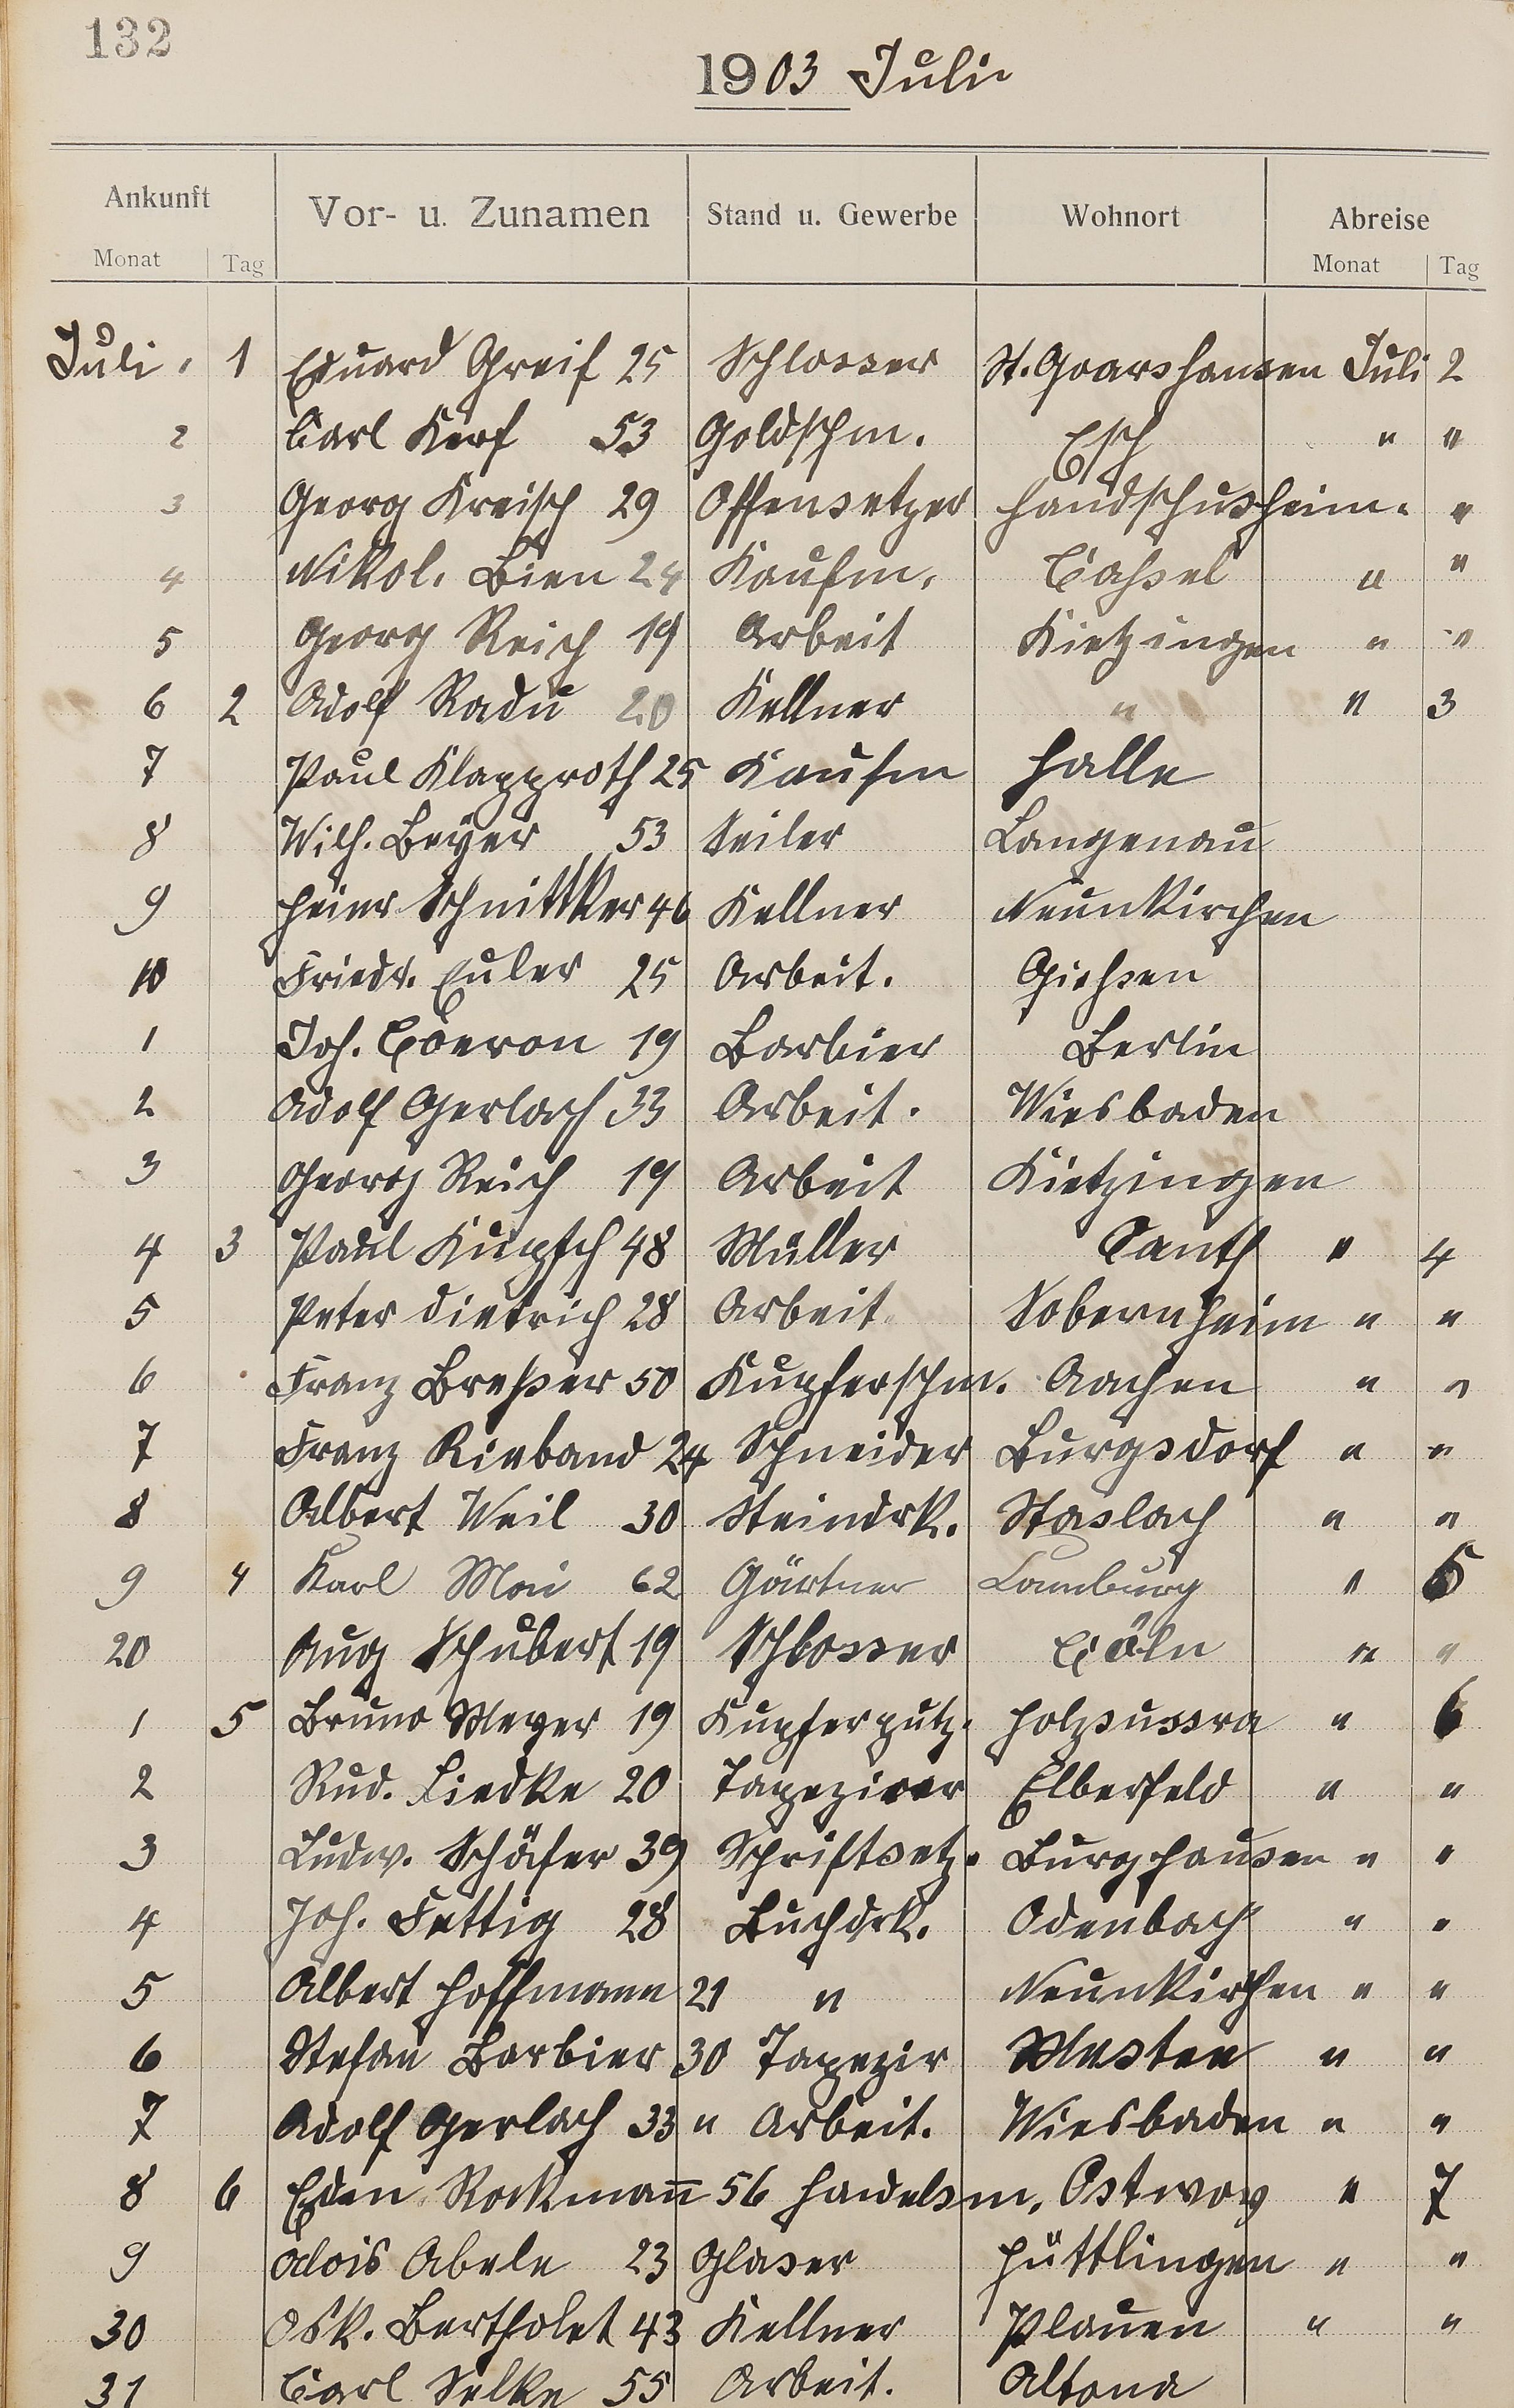 132
1903 Juli
Ankunft Vor- u. Zunamen Stand u. Gewerbe Wohnort Abreise
Monat Tag Monat Tag
Juli 1 Eduard Greif 25 Schlosser St. Goarshausen Juli 2
2 Carl Kerf 53 Goldschm. Esch " "
3 Georg Kreisch 29 Offensetzer Handschusheim "
4 Nikol. Bien 24 Kaufm. Cassel " "
5 Georg Reich 19 Arbeit Kietzingen " "
6 2 Adolf Radu 20 Kellner " " 3
7 Paul Klapproth 25 Kaufm Halle
8 Wilh. Beyer 53 Seiler Langenau
9 Heinr Schnittker 46 Kellner Neunkirchen
10 Friedr. Euler 25 Arbeit. Giessen
1 Joh. 19 Barbier Berlin
2 Adolf Gerlach 33 Arbeit. Wiesbaden
3 Georg Reich 19 Arbeit Kietzingen
4 3 Paul Kupsch 48 Müller Canth " 4
5 Peter Dietrich 28 Arbeit Sobernheim " "
6 Franz Breßer 50 Kupferschm. Aachen " "
7 Franz Rieband 24 Schneider Burgsdorf " "
8 Albert Weil 30 Steindrk. Staslach " "
9 4 Karl Mai 62 Gärtner " 5
20 Aug Schubert 19 Schlosser Cöln " "
1 5 Bruno Meyer 19 Kupferputz. Holzsussra " 6
2 Rud. Liedke 20 Tapezirer Elberfeld " "
3 Ludw. Schäfer 39 Schriftsetz. Burghausen " "
4 Joh. Fettig 28 Buchdrk. Odenbach " "
5 Albert Hoffmann 21 " Neunkirchen " "
6 Stefan Barbier 30 Tapezir " "
7 Adolf Gerlach 33 " Arbeit. Wiesbaden " "
8 6 Eden Rockmann 56 Handelsm. " 7
9 Alois Abele 23 Glaser Hüttlingen " "
30 Osk. Bertholet 43 Kellner Plauen " "
31 Carl Selke 55 Arbeit. Altona